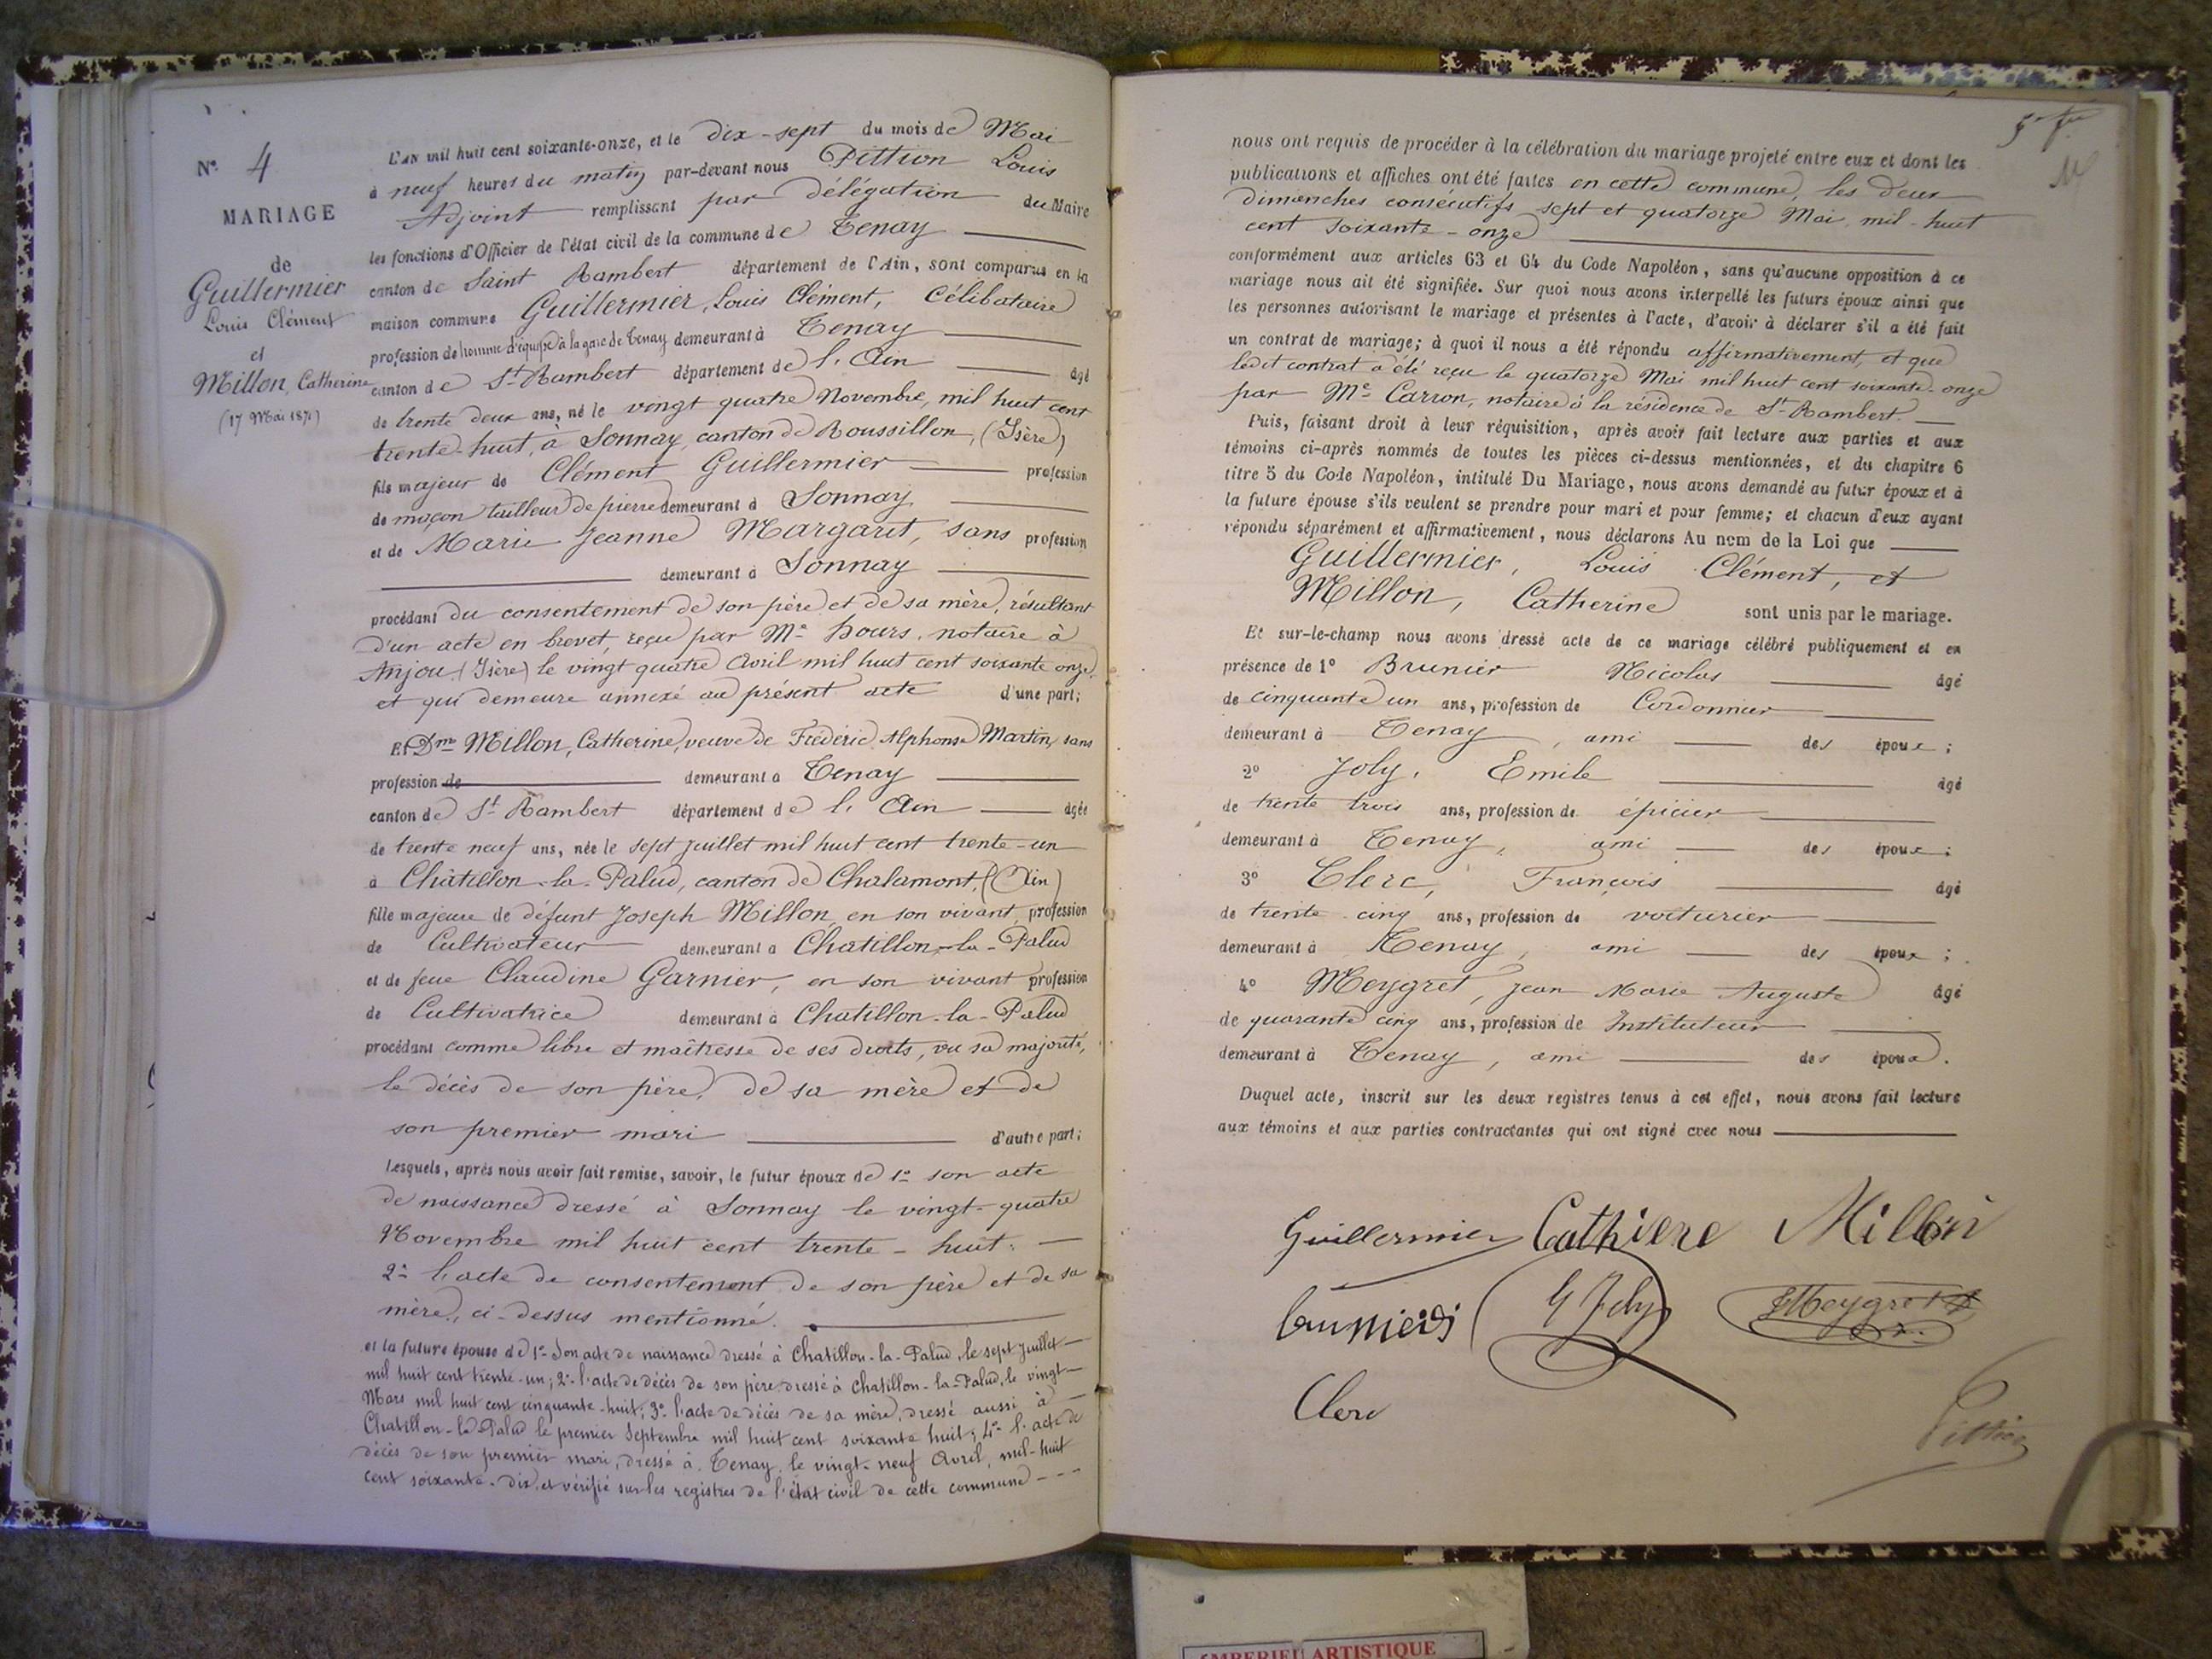 N.° 4
MARIAGE
de
Guillermier
Louis Clément
et
Millon, Catherine
(17 Mai 1871)
L'AN mil huit cent soixante-onze, et le dix-sept du mois de Mai
à neuf heures du matin par-devant nous Pittion Louis
Adjoint remplissant par délégation du Maire
les fonctions d'Officier de l'état civil de la commune de Tenay
canton de Saint Rambert département de l'Ain, sont comparus en la
maison commune Guillermier, Louis Clément, Célibataire
profession de homme d'équipe à la gare de Tenay demeurant à Tenay
canton de St Rambert département de l'Ain âgé
de trente deux ans, né le vingt quatre Novembre, mil huit cent
trente-huit, à Sonnay, canton de Roussillon, (Isère)
fils majeur de Clément Guillermier profession
de maçon tailleur de pierre demeurant à Sonnay
et de Marie Jeanne Margaret, sans profession
demeurant à Sonnay
procédant du consentement de son père et de sa mère, résultant
d'un acte en brevet, reçu par Me Hours, notaire à
Anjou (Isère) le vingt quatre Avril mil huit cent soixante onze,
et qui demeure annexé au présent acte d'une part;
Et Dme Millon, Catherine, veuve de Frédéric Alphonse Martin, sans
profession de demeurant à Tenay
canton de St Rambert département de l'Ain âgée
de trente neuf ans, née le sept juillet mil huit cent trente-un
à Châtillon-la-Palud, canton de Chalamont, (Ain)
fille majeure de défunt Joseph Millon en son vivant profession
de Cultivateur demeurant à Chatillon-la-Palud
et de feue Claudine Garnier, en son vivant profession
de Cultivatrice demeurant à Chatillon-la-Palud
procédant comme libre et maîtresse de ses droits, vu sa majorité,
le décès de son père, de sa mère et de
son premier mari d'autre part;
Lesquels, après nous avoir fait remise, savoir, le futur époux de 1° son acte
de naissance dressé à Sonnay le vingt-quatre
Novembre mil huit cent trente-huit;
2° l'acte de consentement de son père et de sa
mère, ci-dessus mentionné.
et la future épouse de 1° son acte de naissance dressé à Chatillon-la-Palud, le sept juillet
mil huit cent trente-un; 2° l'acte de décès de son père dressé à Chatillon-la-Palud, le vingt
Mars mil huit cent cinquante-huit; 3° l'acte de décès de sa mère, dressé aussi à
Chatillon-la-Palud le premier Septembre mil huit cent soixante huit; 4° l'acte de
décès de son premier mari, dressé à Tenay, le vingt-neuf Avril, mil-huit
cent soixante-dix, et vérifié sur les registres de l'état civil de cette commune
nous ont requis de procéder à la célébration du mariage projeté entre eux et dont les
publications et affiches ont été faites en cette commune, les deux
dimanches consécutifs sept et quatorze Mai, mil-huit
cent soixante-onze
conformément aux articles 63 et 64 du Code Napoléon, sans qu'aucune opposition à ce
mariage nous ait été signifiée. Sur quoi nous avons interpellé les futurs époux ainsi que
les personnes autorisant le mariage et présentes à l'acte, d'avoir à déclarer s'il a été fait
un contrat de mariage; à quoi il nous a été répondu affirmativement, et que
ledit contrat a été reçu le quatorze Mai mil huit cent soixante-onze
par Me Carron, notaire à la résidence de St Rambert.
Puis, faisant droit à leur réquisition, après avoir fait lecture aux parties et aux
témoins ci-après nommés de toutes les pièces ci-dessus mentionnées, et du chapitre 6
titre 5 du Code Napoléon, intitulé Du Mariage, nous avons demandé au futur époux et à
la future épouse s'ils veulent se prendre pour mari et pour femme; et chacun d'eux ayant
répondu séparément et affirmativement, nous déclarons Au nom de la Loi que
Guillermier, Louis Clément, et
Millon, Catherine sont unis par le mariage.
Et sur-le-champ nous avons dressé acte de ce mariage célébré publiquement et en
présence de 1° Brunier Nicolas âgé
de cinquante un ans, profession de Cordonnier
demeurant à Tenay, ami des époux;
2° Joly, Emile âgé
de trente trois ans, profession de épicier
demeurant à Tenay, ami des époux;
3° Clerc, François âgé
de trente-cinq ans, profession de voiturier
demeurant à Tenay, ami des époux;
4° Meygret, Jean Marie Auguste âgé
de quarante cinq ans, profession de Instituteur
demeurant à Tenay, ami des époux.
Duquel acte, inscrit sur les deux registres tenus à cet effet, nous avons fait lecture
aux témoins et aux parties contractantes qui ont signé avec nous
Guillermier Cathiere Millon
E Joly Meygret
Clerc
Pittion
ARTISTIQUE